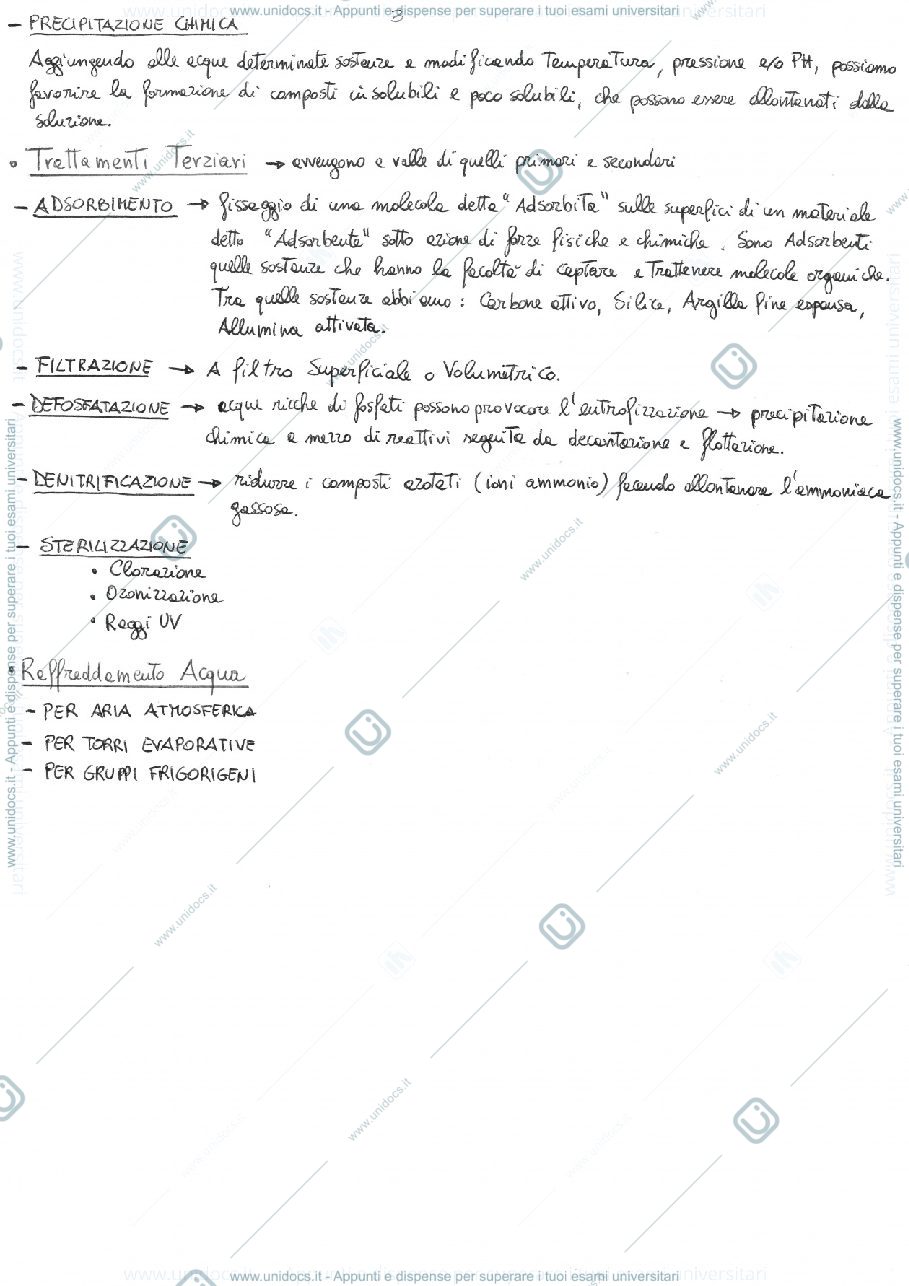 www.unidocs.it - Appunti e dispense per superare i tuoi esami universitari
3
- PRECIPITAZIONE CHIMICA
Aggiungendo alle acque determinate sostanze e modificando Temperatura, pressione e/o PH, possiamo
favorire la formazione di composti insolubili e poco solubili, che possono essere allontanati dalla
soluzione.
• Trattamenti Terziari → avvengono a valle di quelli primari e secondari
- ADSORBIMENTO → fissaggio di una molecola detta "Adsorbita" sulle superfici di un materiale
detto "Adsorbente" sotto azione di forze fisiche e chimiche. Sono Adsorbenti
quelle sostanze che hanno la facoltà di captare e Trattenere molecole organiche.
Tra quelle sostanze abbiamo: Carbone attivo, Silice, Argilla fine espansa,
Allumina attivata.
- FILTRAZIONE → A filtro Superficiale o Volumetrico.
- DEFOSFATAZIONE → acque ricche di fosfati possono provocare l'eutrofizzazione → precipitazione
chimica a mezzo di reattivi seguita da decantazione e flottazione.
- DENITRIFICAZIONE → ridurre i composti azotati (ioni ammonio) facendo allontanare l'ammoniaca
gassosa.
- STERILIZZAZIONE
• Clorazione
• Ozonizzazione
• Raggi UV
• Raffreddamento Acqua
- PER ARIA ATMOSFERICA
- PER TORRI EVAPORATIVE
- PER GRUPPI FRIGORIGENI
www.unidocs.it - Appunti e dispense per superare i tuoi esami universitari
www.unidocs.it - Appunti e dispense per superare i tuoi esami universitari
www.unidocs.it
www.unidocs.it
www.unidocs.it
www.unidocs.it
www.unidocs.it
www.unidocs.it
www.unidocs.it - Appunti e dispense per superare i tuoi esami universitari